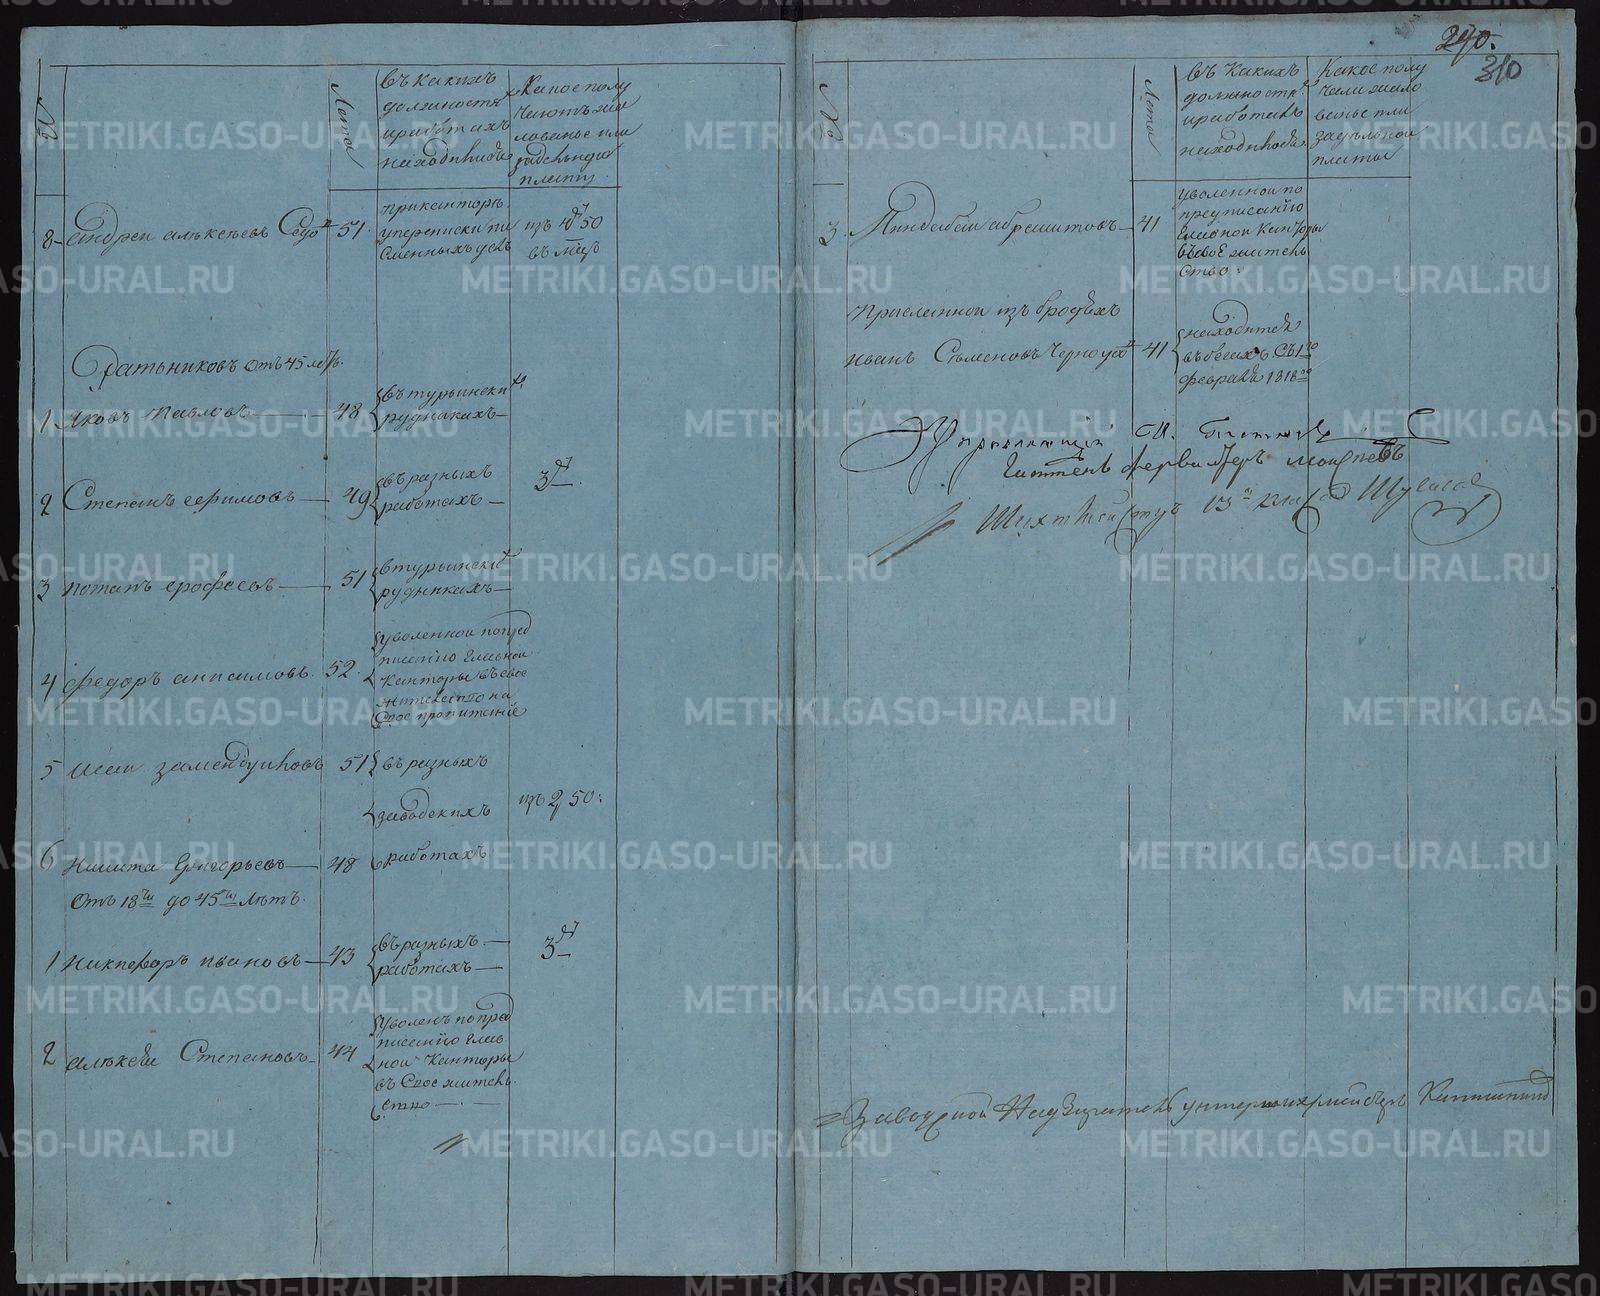 №
Лета
въ какихъ
должностях
и работахъ
находились
Какое полу
чаютъ жа
лованье или
задельную
плату
8 Андреи алексеевъ Седо 51
при канторъ
у переписки пи
сменныхъ делъ
изъ 4 50
въ мцъ
Ратьниковъ отъ 45 летъ
1 Яковъ Павловъ 48
въ турьински
рудникахъ
2 Степанъ ефимовъ 49
въ разныхъ
работахъ
3
3 потапъ ерофеевъ 51
в турьински
рудникахъ
4 федоръ анисимовъ 52
уволеннои по пред
писанію главнои
Канторы въ свое
жительство на
Свое пропитаніе
5 Исаи 51
въ разныхъ
заводскихъ
изъ 2 50
6 Никита Григорьевъ 48
работахъ
Отъ 18ти до 45ти Летъ
1 Никифоръ ивановъ 43
въ разныхъ
работахъ
3
2 алексеи Степановъ 44
уволенъ по пред
писанію глав
нои Канторы
въ Свое житель
ство
290.
310
№
Лета
въ какихъ
должностя
и работахъ
находились
Какое полу
чали жало
ванье или
задельнои
платы
3 абрешитовъ 41
уволеннои по
предписанію
главнои Канторы
въ свое житель
ство
Присланнои изъ бродягъ
иванъ Семеновъ Черноусо 41
находится
въ бегахъ Съ 1го
февраля 1818го
Управляющій
Гиттенъ фервалтеръ
Шихтмейстеръ 13 класса
Заводской Надзиратель унтершихтмейстеръ
METRIKI.GASO-URAL.RU